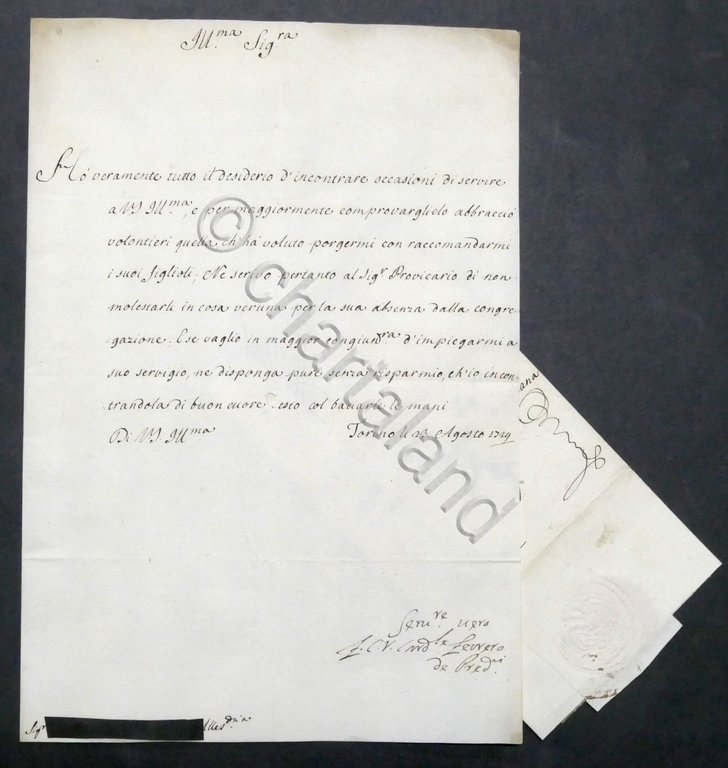 Ill.ma Sig.ra
Hò veramente tutto il desiderio d'incontrare occasioni di servire
a VS Ill.ma, e per maggiormente comprovarglielo abbraccio
volontieri quella ch'hà voluto porgermi con raccomandarmi
i suoi figlioli; Ne scrivo pertanto al Sig.r Provicario di non
molestarli in cosa veruna per la sua absenza dalla congre-
gazione. E se vaglio in maggior congiun.ra d'impiegarmi a
suo servigio, ne disponga pure senza risparmio, ch'io incon-
trandola di buon cuore resto col baciarle le mani
Di VS Ill.ma Torino li Agosto 1729
Seru.re vero
F. C. V. Card.le Ferrero
de Pred.ri
Sig.ra Aless.dria
ana
© chartaland